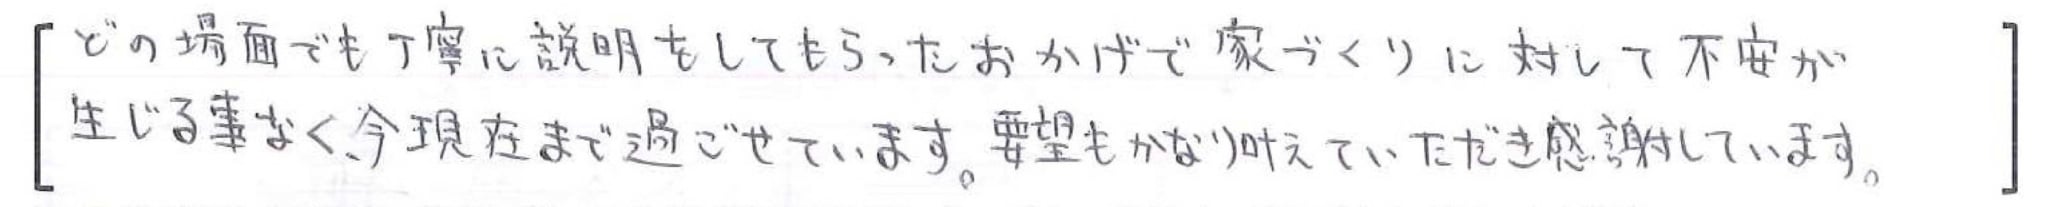 どの場面でも丁寧に説明をしてもらったおかげで家づくりに対して不安が
生じる事なく、今現在まで過ごせています。要望もかなり叶えていただき感謝しています。